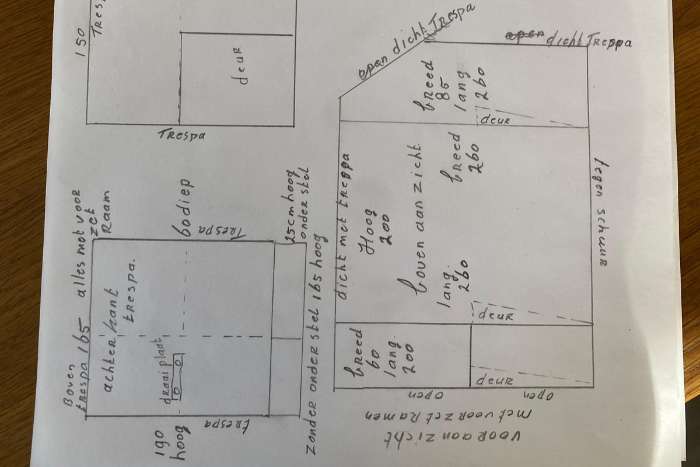 150
Trespa
deur
Trespa
Boven
trespa 165
alles met voor
zet
Raam
achterkant
trespa.
draai plant
60 diep
Trespa
190
hoog
trespa
25cm hoog
onder stel
zonder onder stel 165 hoog
open dicht Trespa
open dicht Trespa
breed
85
lang
260
deur
tegen schuur
dicht met treppa
Hoog
200
boven aan zicht
breed
260
lang.
260
deur
breed
60
lang.
200
deur
open
open
met voor zet Ramen
voor aan zicht